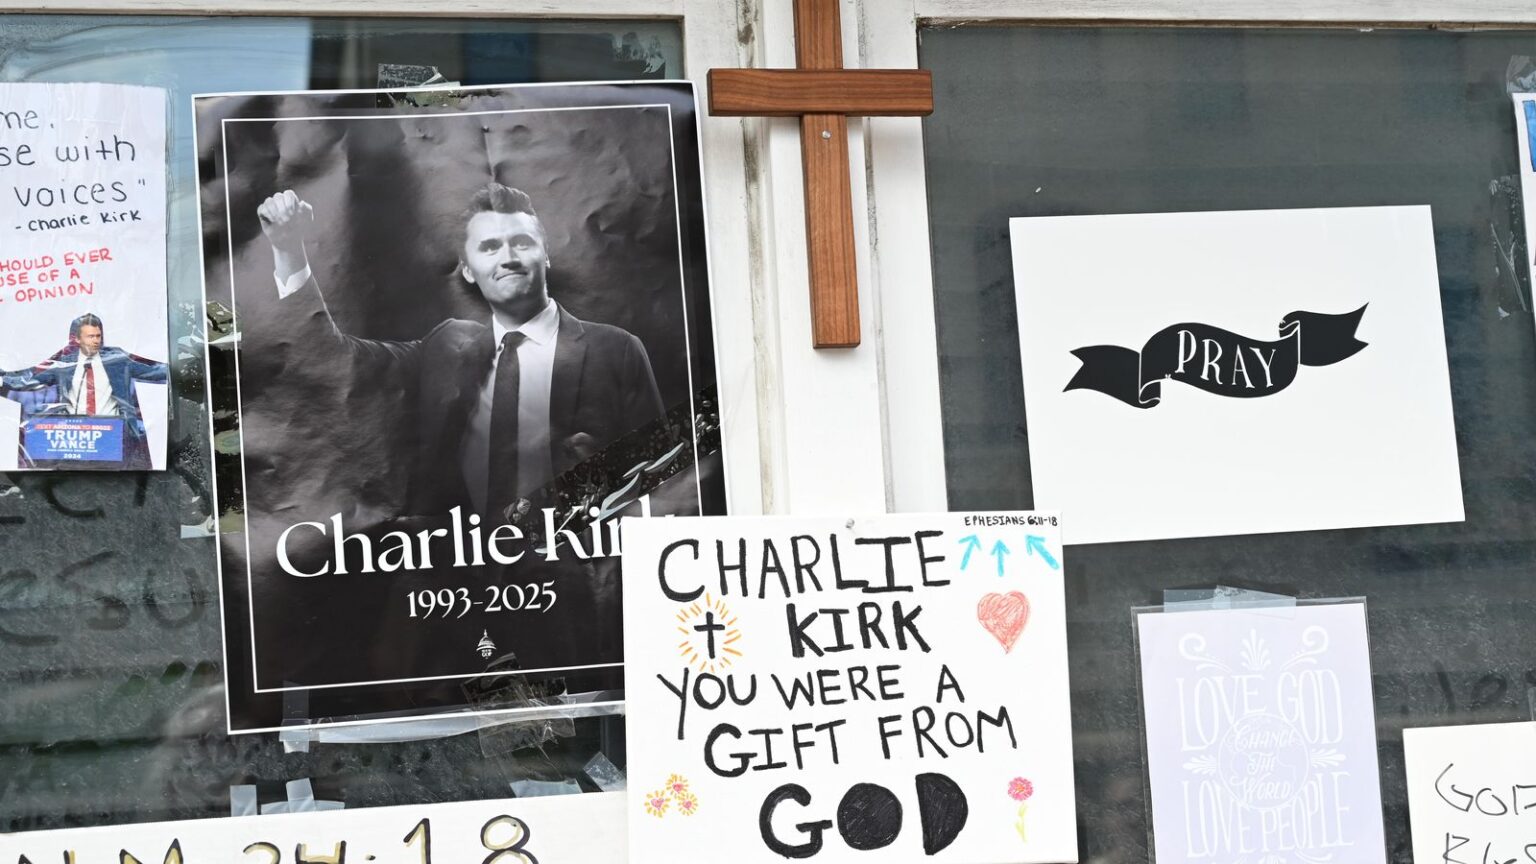 me.
se with
voices"
- Charlie Kirk
HOULD EVER
USE OF A
OPINION
TRUMP
VANCE
2024
Charlie Kirk
1993-2025
PRAY
EPHESIANS 6:11-18
CHARLIE
KIRK
YOU WERE A
GIFT FROM
GOD
LOVE GOD
CHANGE
THE
WORLD
LOVE PEOPLE
LM 34:18
GOD